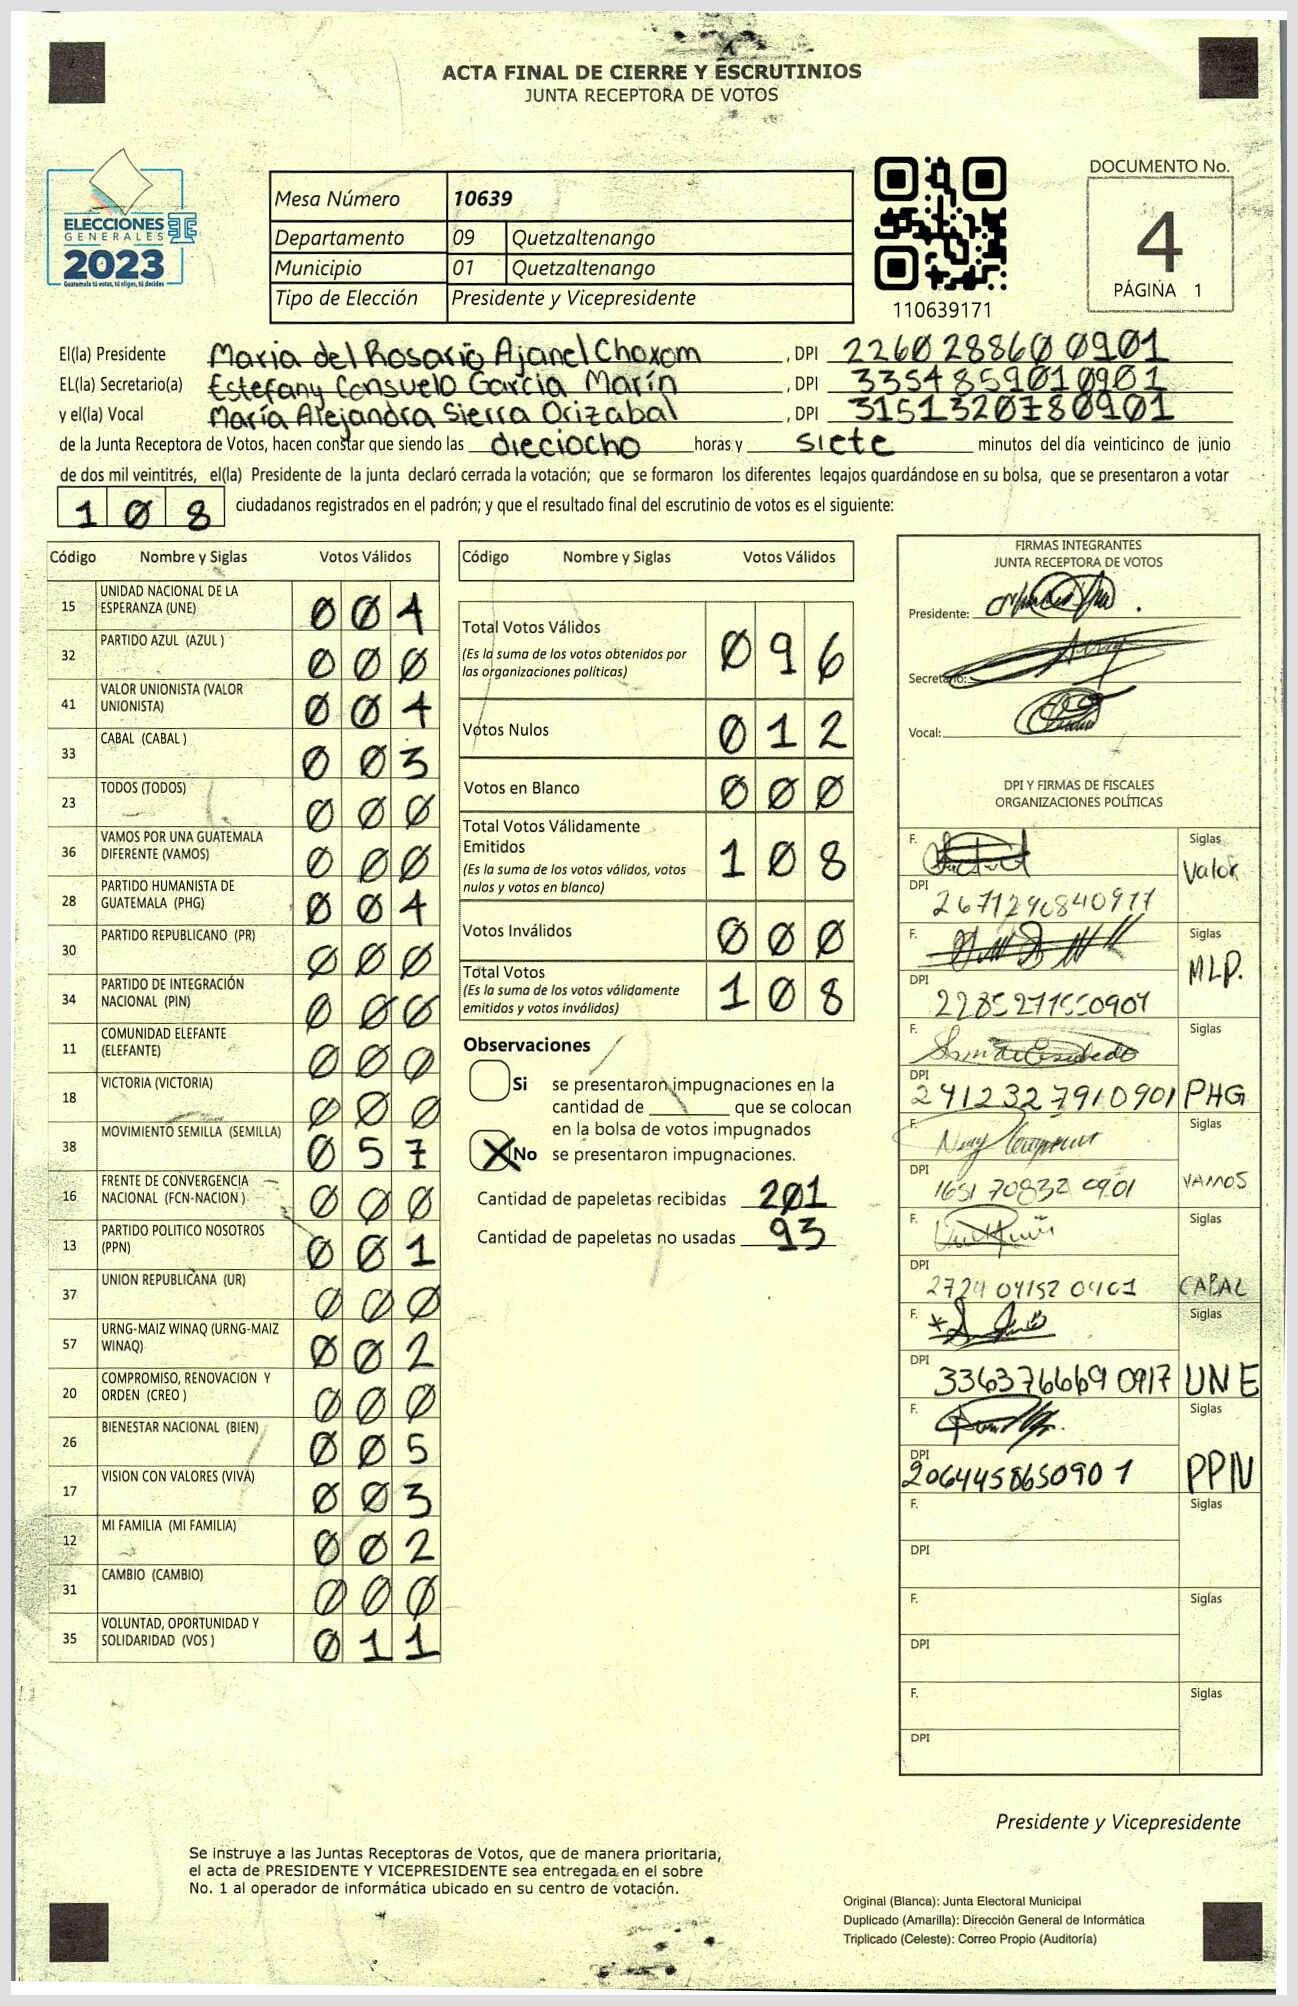 ACTA FINAL DE CIERRE Y ESCRUTINIOS
JUNTA RECEPTORA DE VOTOS
ELECCIONES
GENERALES
2023
Guatemala tú votas, tú eliges, tú decides
Mesa Número 10639
Departamento 09 Quetzaltenango
Municipio 01 Quetzaltenango
Tipo de Elección Presidente y Vicepresidente
110639171
DOCUMENTO No.
4
PÁGINA 1
El(la) Presidente Maria del Rosario Ajanel Choxom , DPI 2260288600901
EL(la) Secretario(a) Estefany Consuelo Garcia Marín , DPI 3354859010901
y el(la) Vocal María Alejandra Sierra Orizabal , DPI 3151320780901
de la Junta Receptora de Votos, hacen constar que siendo las dieciocho horas y siete minutos del día veinticinco de junio
de dos mil veintitrés, el(la) Presidente de la junta declaró cerrada la votación; que se formaron los diferentes legajos guardándose en su bolsa, que se presentaron a votar
108 ciudadanos registrados en el padrón; y que el resultado final del escrutinio de votos es el siguiente:
Código Nombre y Siglas Votos Válidos
15 UNIDAD NACIONAL DE LA ESPERANZA (UNE) 004
32 PARTIDO AZUL (AZUL ) 000
41 VALOR UNIONISTA (VALOR UNIONISTA) 004
33 CABAL (CABAL ) 003
23 TODOS (TODOS) 000
36 VAMOS POR UNA GUATEMALA DIFERENTE (VAMOS) 000
28 PARTIDO HUMANISTA DE GUATEMALA (PHG) 004
30 PARTIDO REPUBLICANO (PR) 000
34 PARTIDO DE INTEGRACIÓN NACIONAL (PIN) 000
11 COMUNIDAD ELEFANTE (ELEFANTE) 000
18 VICTORIA (VICTORIA) 000
38 MOVIMIENTO SEMILLA (SEMILLA) 057
16 FRENTE DE CONVERGENCIA NACIONAL (FCN-NACION ) 000
13 PARTIDO POLITICO NOSOTROS (PPN) 001
37 UNION REPUBLICANA (UR) 000
57 URNG-MAIZ WINAQ (URNG-MAIZ WINAQ) 002
20 COMPROMISO, RENOVACION Y ORDEN (CREO ) 000
26 BIENESTAR NACIONAL (BIEN) 005
17 VISION CON VALORES (VIVA) 003
12 MI FAMILIA (MI FAMILIA) 002
31 CAMBIO (CAMBIO) 000
35 VOLUNTAD, OPORTUNIDAD Y SOLIDARIDAD (VOS ) 011
Código Nombre y Siglas Votos Válidos
Total Votos Válidos 096
(Es la suma de los votos obtenidos por
las organizaciones políticas)
Votos Nulos 012
Votos en Blanco 000
Total Votos Válidamente
Emitidos 108
(Es la suma de los votos válidos, votos
nulos y votos en blanco)
Votos Inválidos 000
Total Votos 108
(Es la suma de los votos válidamente
emitidos y votos inválidos)
Observaciones
Si se presentaron impugnaciones en la
cantidad de ________ que se colocan
en la bolsa de votos impugnados
X No se presentaron impugnaciones.
Cantidad de papeletas recibidas 201
Cantidad de papeletas no usadas 93
FIRMAS INTEGRANTES
JUNTA RECEPTORA DE VOTOS
Presidente:
Secretario:
Vocal:
DPI Y FIRMAS DE FISCALES
ORGANIZACIONES POLÍTICAS
F. Siglas Valor
DPI
F. Siglas MLP.
DPI
F. Siglas PHG
DPI 2412327910901
F. Siglas VAMOS
DPI
F. Siglas CABAL
DPI
F. Siglas UNE
DPI 3363766690917
F. Siglas PPN
DPI 2064458650901
F. Siglas
DPI
F. Siglas
DPI
F. Siglas
DPI
Presidente y Vicepresidente
Se instruye a las Juntas Receptoras de Votos, que de manera prioritaria,
el acta de PRESIDENTE Y VICEPRESIDENTE sea entregada en el sobre
No. 1 al operador de informática ubicado en su centro de votación.
Original (Blanca): Junta Electoral Municipal
Duplicado (Amarilla): Dirección General de Informática
Triplicado (Celeste): Correo Propio (Auditoría)